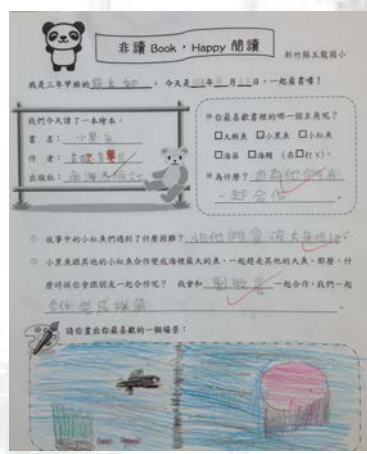 非讀 Book，Happy 閱讀
新竹縣五龍國小
我是三年甲班的 。今天是 年 月 日，一起看書嘍！
我們今天讀了一本繪本。
書 名：小黑魚
作 者：
出版社：
※你最喜歡書裡的哪一個主角呢？
□大鮪魚 □小黑魚 □小紅魚
□海葵 □海鰻 （在□打V）。
※為什麼？因為他們在
一起合作。
◎ 故事中的小紅魚們遇到了什麼困難？怕他們會被大魚吃掉。
◎ 小黑魚跟其他的小紅魚合作變成海裡最大的魚，一起趕走其他的大魚。那麼，什
麼時候你會跟朋友一起合作呢？ 我會和 一起合作，我們一起
合作
請你畫出你最喜歡的一個場景：